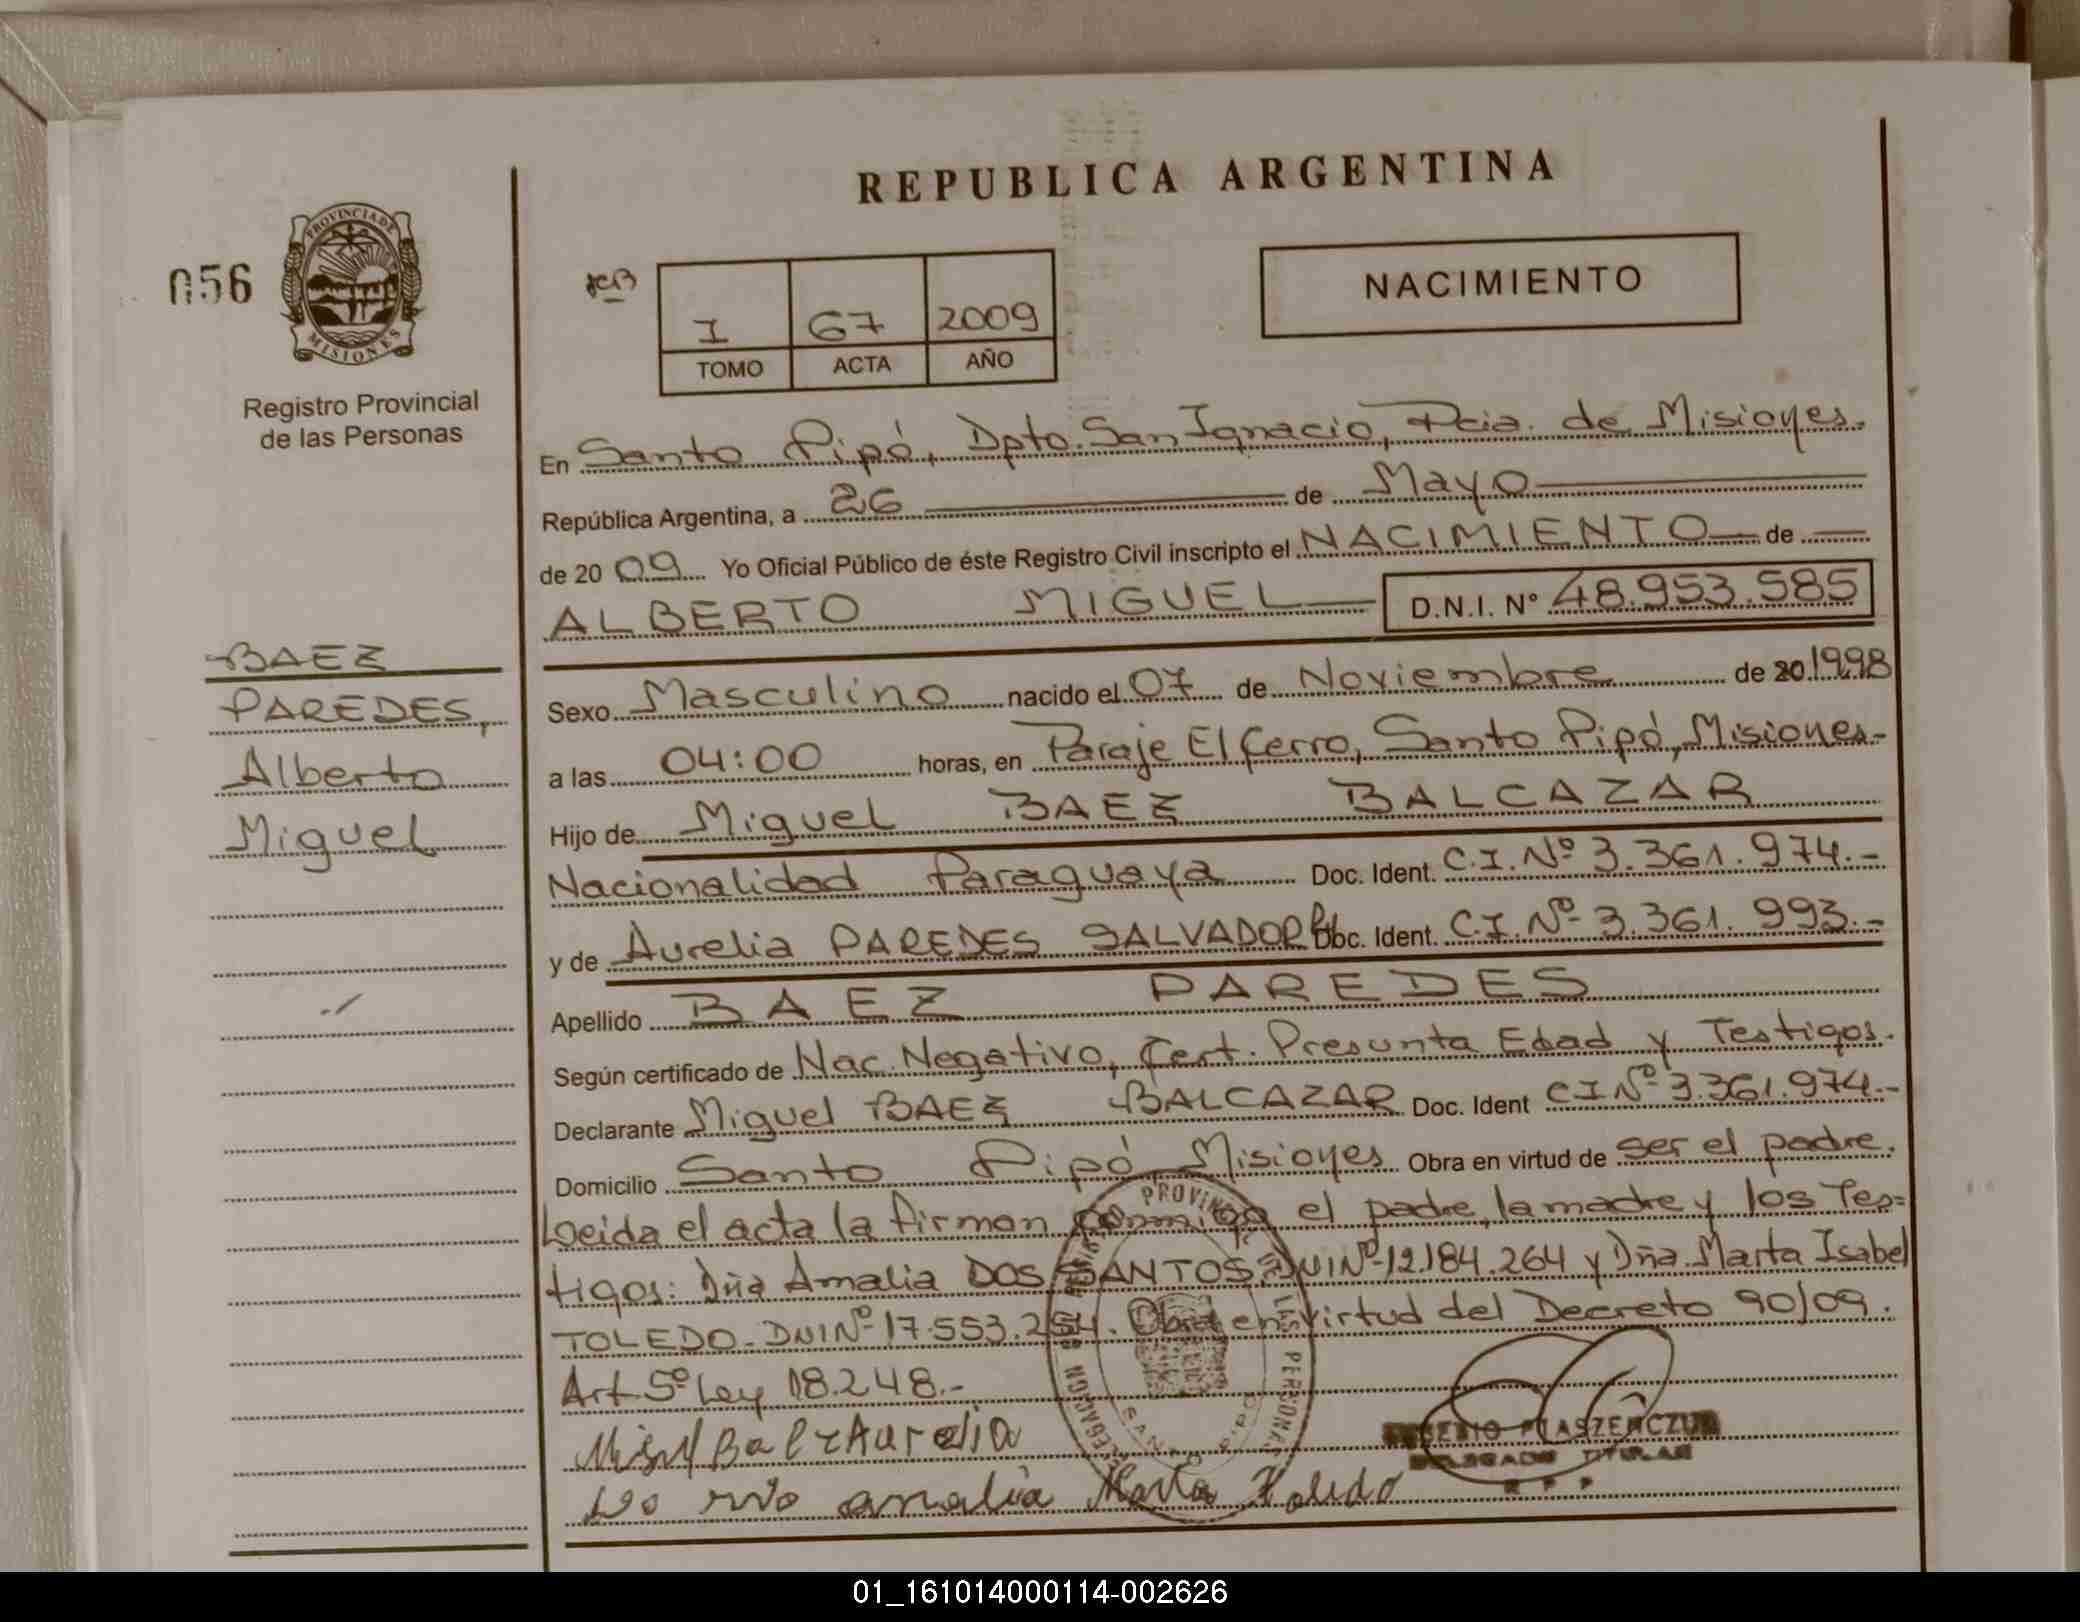 REPUBLICA ARGENTINA
056
PROVINCIA DE MISIONES
Registro Provincial
de las Personas
I 67 2009
TOMO ACTA AÑO
NACIMIENTO
BAEZ
PAREDES,
Alberto
Miguel
En Santo Pipó, Dpto. San Ignacio, Pcia. de Misiones.
República Argentina, a 26 de Mayo
de 2009 Yo Oficial Público de éste Registro Civil inscripto el NACIMIENTO de
ALBERTO MIGUEL D.N.I. Nº 48.953.585
Sexo Masculino nacido el 07 de Noviembre de 20 1998
a las 04:00 horas, en Paraje El Cerro, Santo Pipó, Misiones.-
Hijo de Miguel BAEZ BALCAZAR
Nacionalidad Paraguaya Doc. Ident. C.I. Nº 3.361.974.-
y de Aurelia PAREDES SALVADOR Doc. Ident. C.I. Nº 3.361.993.-
Apellido BAEZ PAREDES
Según certificado de Nac. Negativo, Cert. Presunta Edad y Testigos.
Declarante Miguel BAEZ BALCAZAR Doc. Ident CI Nº 3.361.974.-
Domicilio Santo Pipó, Misiones Obra en virtud de ser el padre.
Leida el acta la firman conmigo el padre, la madre y los Tes=
tigos: Dña Amalia DOS SANTOS DNI Nº 12.184.264 y Dña. Marta Isabel
TOLEDO. DNI Nº 17.553.254. Obra en virtud del Decreto 90/09.
Art 5º Ley 18.248.-
Aurelia
amalia Marta Toledo
DELEGADO TITULAR
01_161014000114-002626